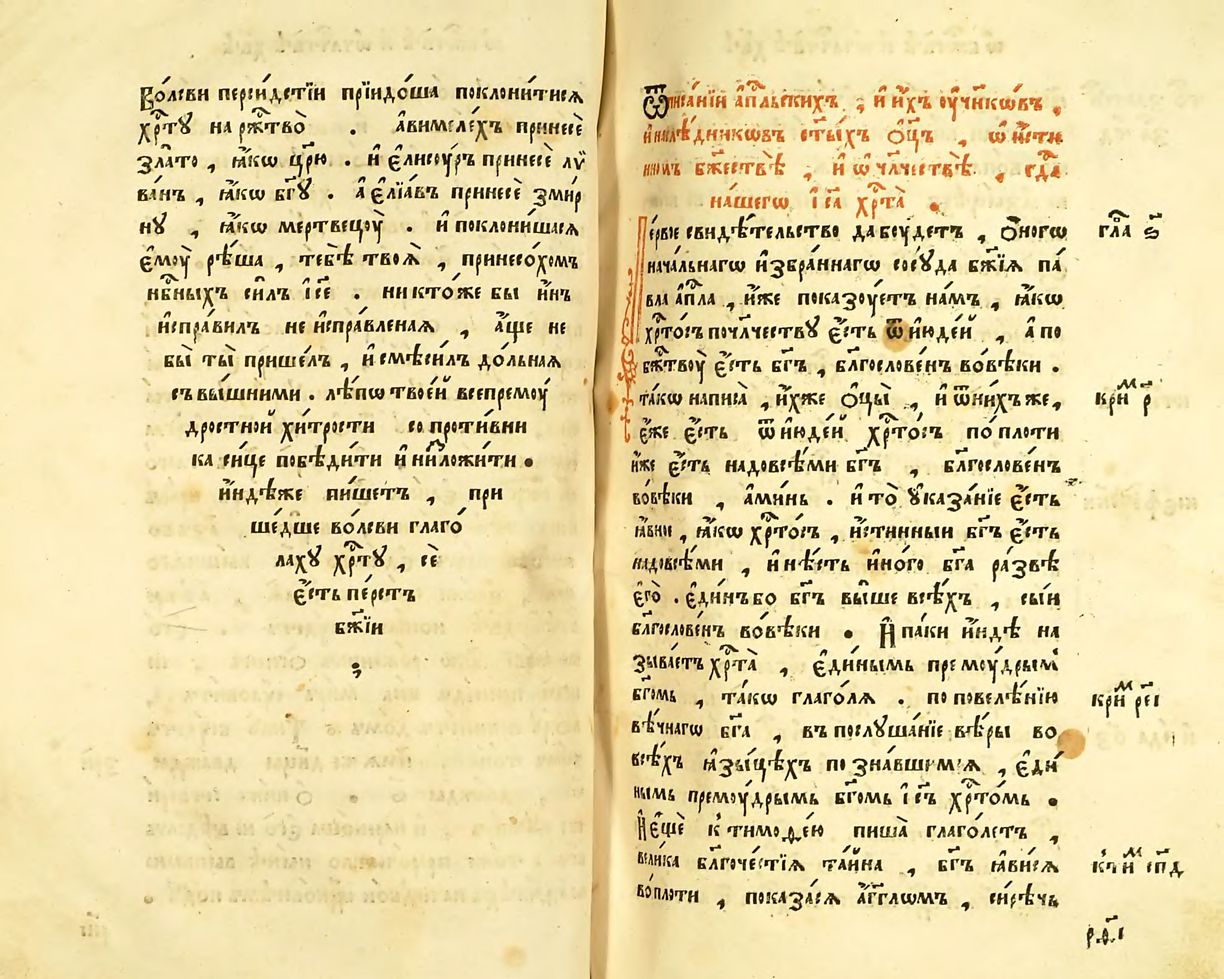 Воле́ви персидстїи прїидо́ша поклони́тисѧ
хрⷭ҇тꙋ на ржⷭ҇тво̀ . а҆вимеле́хъ принесѐ
зла́то , ꙗ҆́кѡ цр҃ю . и҆ є҆лисоу́ръ принесѐ лу
ва́нъ , ꙗ҆́кѡ бг҃ꙋ . а҆ є҆лїа́въ принесѐ зми́р
нꙋ , ꙗ҆́кѡ мертвецоу̀ . и҆ поклони́шасѧ
є҆моу̀ рѣ́ша , тебѣ̀ твоѧ̀ , принесо́хомъ
нбⷭ҇ныхъ си́лъ і҆с҃е . никто́же бы и҆́нъ
и҆спра́вилъ не и҆спра́вленаѧ , а҆́ще не
бы̀ ты̀ прише́лъ , и҆ смѣси́лъ до́льнаѧ
съ вы́шними . лѣ́пѡ твое́й всепремоу́
дростной хи́трости сопроти́вни
ка си́це побѣди́ти и҆ низложи́ти .
и҆ндѣ́же пи́шетъ , при
ше́дше воле́ви глаго́
лахꙋ хрⷭ҇тꙋ , сѐ
є҆́сть пе́рстъ
бж҃їи
Ѿ писа́нїй а҆пⷭ҇льскихъ ; и҆ и҆́хъ оу҆чн҃кѡвъ ,
и҆ наслѣ́дникѡвъ ст҃ы́хъ ѻ҆ц҃ъ , ѡ҆ и҆́сти
нномъ бжествѣ̀ , и҆ ѡ҆ чл҃чествѣ̀ , гдⷭ҇а
на́шегѡ і҆с҃а хрⷭ҇та̀ .
Пе́рвое свидѣ́тельство да боу́детъ , ѻ҆́ногѡ
нача́льнагѡ и҆збра́ннагѡ сосоу́да бж҃їѧ па́
вла а҆пⷭ҇ла , и҆́же показоу́етъ на́мъ , ꙗ҆́кѡ
хрⷭ҇то́съ по чл҃честву є҆́сть ѿ и҆юде́й , а҆ по
бжⷭ҇твоу̀ є҆́сть бг҃ъ , блгⷭ҇ослове́нъ во вѣ́ки .
та́кѡ написа̀ , и҆́хже ѻ҆ц҃ы̀ , и҆ ѿ ни́хъ же ,
є҆́же є҆́сть ѿ и҆юде́й хрⷭ҇то́съ по пло́ти
и҆́же є҆́сть надо всѣ́ми бг҃ъ , блгⷭ҇ослове́нъ
во вѣ́ки , а҆ми́нь . и҆ то̀ ꙋ҆каза́нїе є҆́сть
ꙗ҆́вно , ꙗ҆́кѡ хрⷭ҇то́съ , и҆́стинныи бг҃ъ є҆́сть
надо всѣ́ми , и҆ нѣ́сть и҆но́го бг҃а ра́звѣ
є҆гѡ̀ . є҆ди́нъ бо бг҃ъ вы́ше всѣ́хъ , сы́и
блгⷭ҇ослове́нъ во вѣ́ки . И҆ па́ки и҆́ндѣ на
зыва́етъ хрⷭ҇та̀ , є҆ди́нымъ премоу́дрымъ
бг҃омъ , та́кѡ глаго́лѧ . по повелѣ́нїю
вѣ́чнагѡ бг҃а , въ послꙋша́нїе вѣ́ры во
всѣ́хъ ꙗ҆зы́цѣхъ позна́вшемсѧ , є҆ди́
нымъ премоу́дрымъ бг҃омъ і҆с҃ъ хрⷭ҇то́мъ .
И҆ є҆щѐ к тимоѳе́ю пиша̀ глаго́летъ ,
вели́ка благоче́стїѧ та́йна , бг҃ъ ꙗ҆ви́сѧ
во пло́ти , показа́сѧ а҆́гг҃лѡмъ , си́рѣчь
гла҃ ѕ҃
к ри́мⷨ р҃
к ри́мⷨ рє҃і
к ти́мⷨ сп҃д